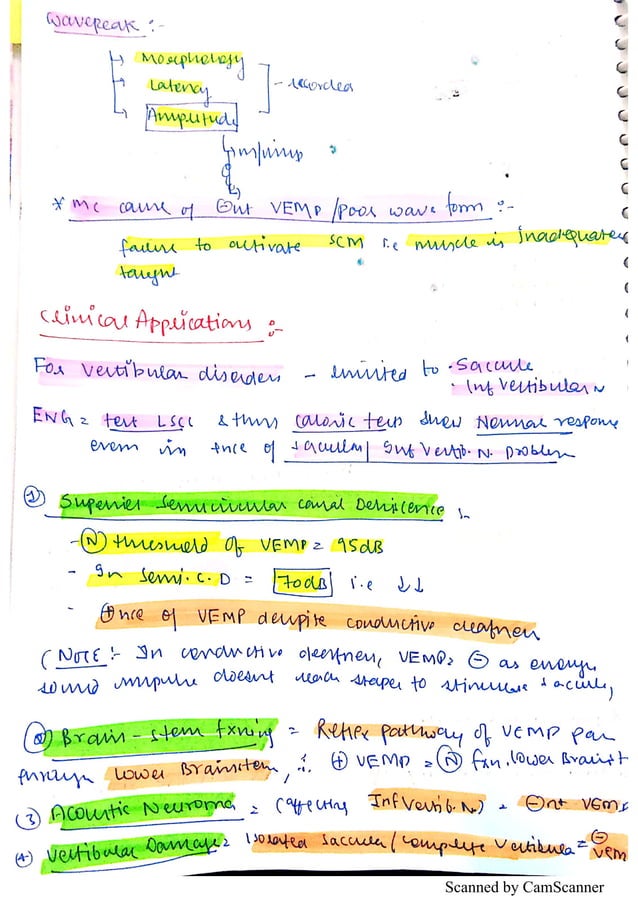 Wavepeak :-
Morphology
Latency - recorded
Amplitude
m/imp
* MC cause of ⊖nt VEMP/poor wave form :-
failure to activate SCM i.e muscle is inadequately
taught
Clinical Applications :-
For Vestibular disorders - limited to · Saccule
· Inf Vestibular N
ENG = test LSCC & thus caloric tests show Normal response
even in +nce of saccular/Inf Vestib. N. Problem
① Superior Semicircular canal Dehiscence :-
- (N) threshold of VEMP = 95dB
- In Semi.C.D = 70dB i.e ↓↓
- ⊕nce of VEMP despite conductive deafness
(NOTE :- In conductive deafness, VEMP = ⊖ as enough
sound impulse doesn't reach stapes to stimulate saccule)
② Brain-stem fxning = Reflex pathway of VEMP pass
through lower Brainstem, ∴ ⊕ VEMP = (N) fxn. lower Brainst
(3) Acoustic Neuroma = (affecting Inf Vestib. N) = ⊖nt VEMP
(4) Vestibular Damage = Isolated Saccule/complete Vestibular = ⊖ VEM
Scanned by CamScanner